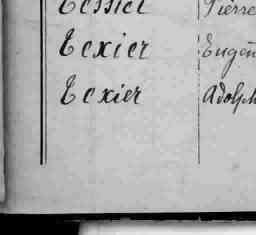 Tessier Pierre
Texier Eugèn
Texier Adolph